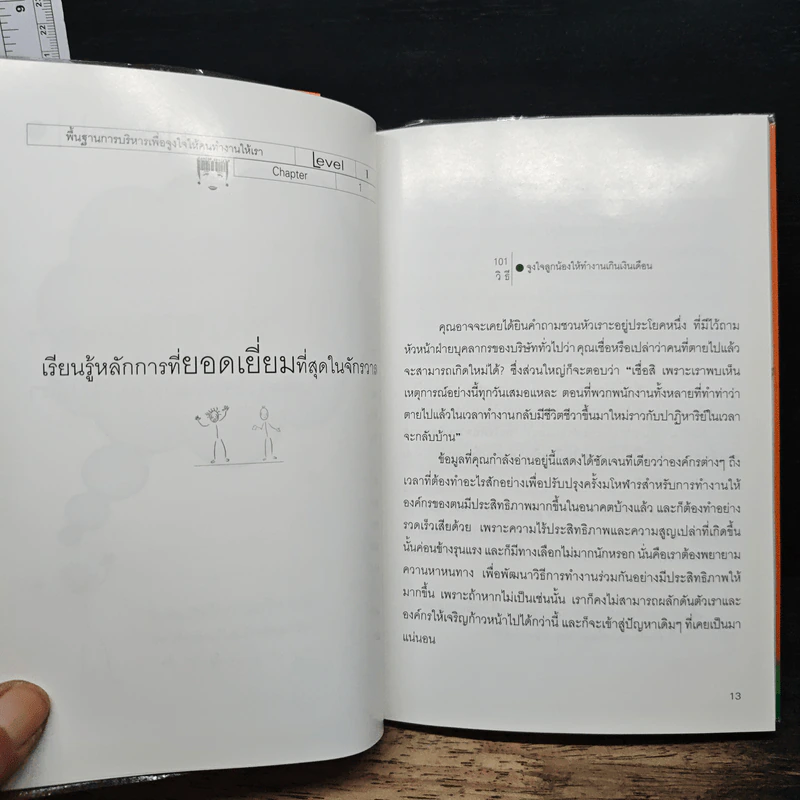 9
22
21
พื้นฐานการบริหารเพื่อจูงใจให้คนทำงานให้เรา
Level 1
Chapter 1
เรียนรู้หลักการที่ยอดเยี่ยมที่สุดในจักรวาล
101
วิธี
จูงใจลูกน้องให้ทำงานเกินเงินเดือน
คุณอาจจะเคยได้ยินคำถามชวนหัวเราะอยู่ประโยคหนึ่ง ที่มีไว้ถาม
หัวหน้าฝ่ายบุคลากรของบริษัททั่วไปว่า คุณเชื่อหรือเปล่าว่าคนที่ตายไปแล้ว
จะสามารถเกิดใหม่ได้? ซึ่งส่วนใหญ่ก็จะตอบว่า "เชื่อสิ เพราะเราพบเห็น
เหตุการณ์อย่างนี้ทุกวันเสมอแหละ ตอนที่พวกพนักงานทั้งหลายที่ทำท่าว่า
ตายไปแล้วในเวลาทำงานกลับมีชีวิตชีวาขึ้นมาใหม่ราวกับปาฏิหาริย์ในเวลา
จะกลับบ้าน"
ข้อมูลที่คุณกำลังอ่านอยู่นี้แสดงได้ชัดเจนทีเดียวว่าองค์กรต่างๆ ถึง
เวลาที่ต้องทำอะไรสักอย่างเพื่อปรับปรุงครั้งมโหฬารสำหรับการทำงานให้
องค์กรของตนมีประสิทธิภาพมากขึ้นในอนาคตบ้างแล้ว และก็ต้องทำอย่าง
รวดเร็วเสียด้วย เพราะความไร้ประสิทธิภาพและความสูญเปล่าที่เกิดขึ้น
นั้นค่อนข้างรุนแรง และก็มีทางเลือกไม่มากนักหรอก นั่นคือเราต้องพยายาม
ควานหาหนทาง เพื่อพัฒนาวิธีการทำงานร่วมกันอย่างมีประสิทธิภาพให้
มากขึ้น เพราะถ้าหากไม่เป็นเช่นนั้น เราก็คงไม่สามารถผลักดันตัวเราและ
องค์กรให้เจริญก้าวหน้าไปได้กว่านี้ และก็จะเข้าสู่ปัญหาเดิมๆ ที่เคยเป็นมา
แน่นอน
13